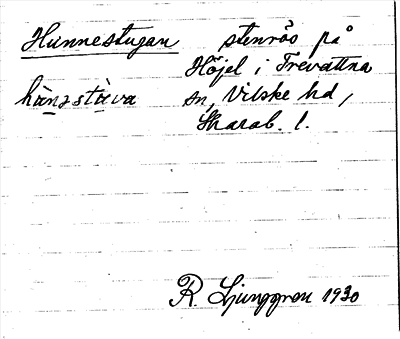 Hunnestugan stenrös på
Höjel i Trevattna
hùnəstùva sn, Vilske hd,
Skarab. l.
R. Ljunggren 1930